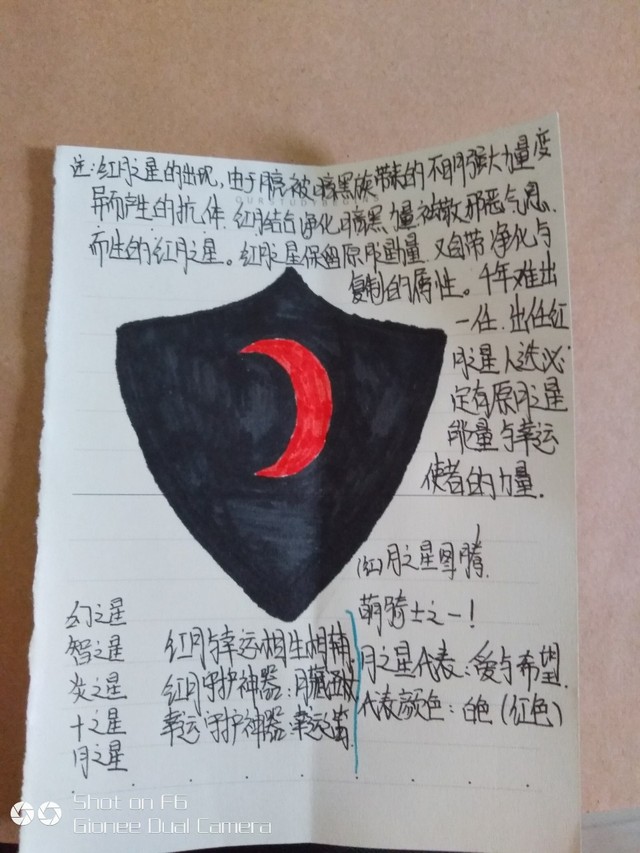 注:红月之星的出现,由于月亮被暗黑族带来的不明强大力量变
异而产生的抗体.红月结合净化暗黑力量被散邪恶气息.
而生的红月之星。红月之星保留原月能量.又自带净化与
复制的属性。千年难出
一任.出任红
月之星人选必
定有原月之星
能量与幸运
使者的力量.
红月之星图腾.
萌骑士之一!
月之星代表:爱与希望.
代表颜色:白色(红色)
幻之星
智之星
炎之星
十之星
月之星
红月与幸运相生相辅.
红月守护神器:月藏
幸运守护神器:幸运笛
Shot on F6
Gionee Dual Camera